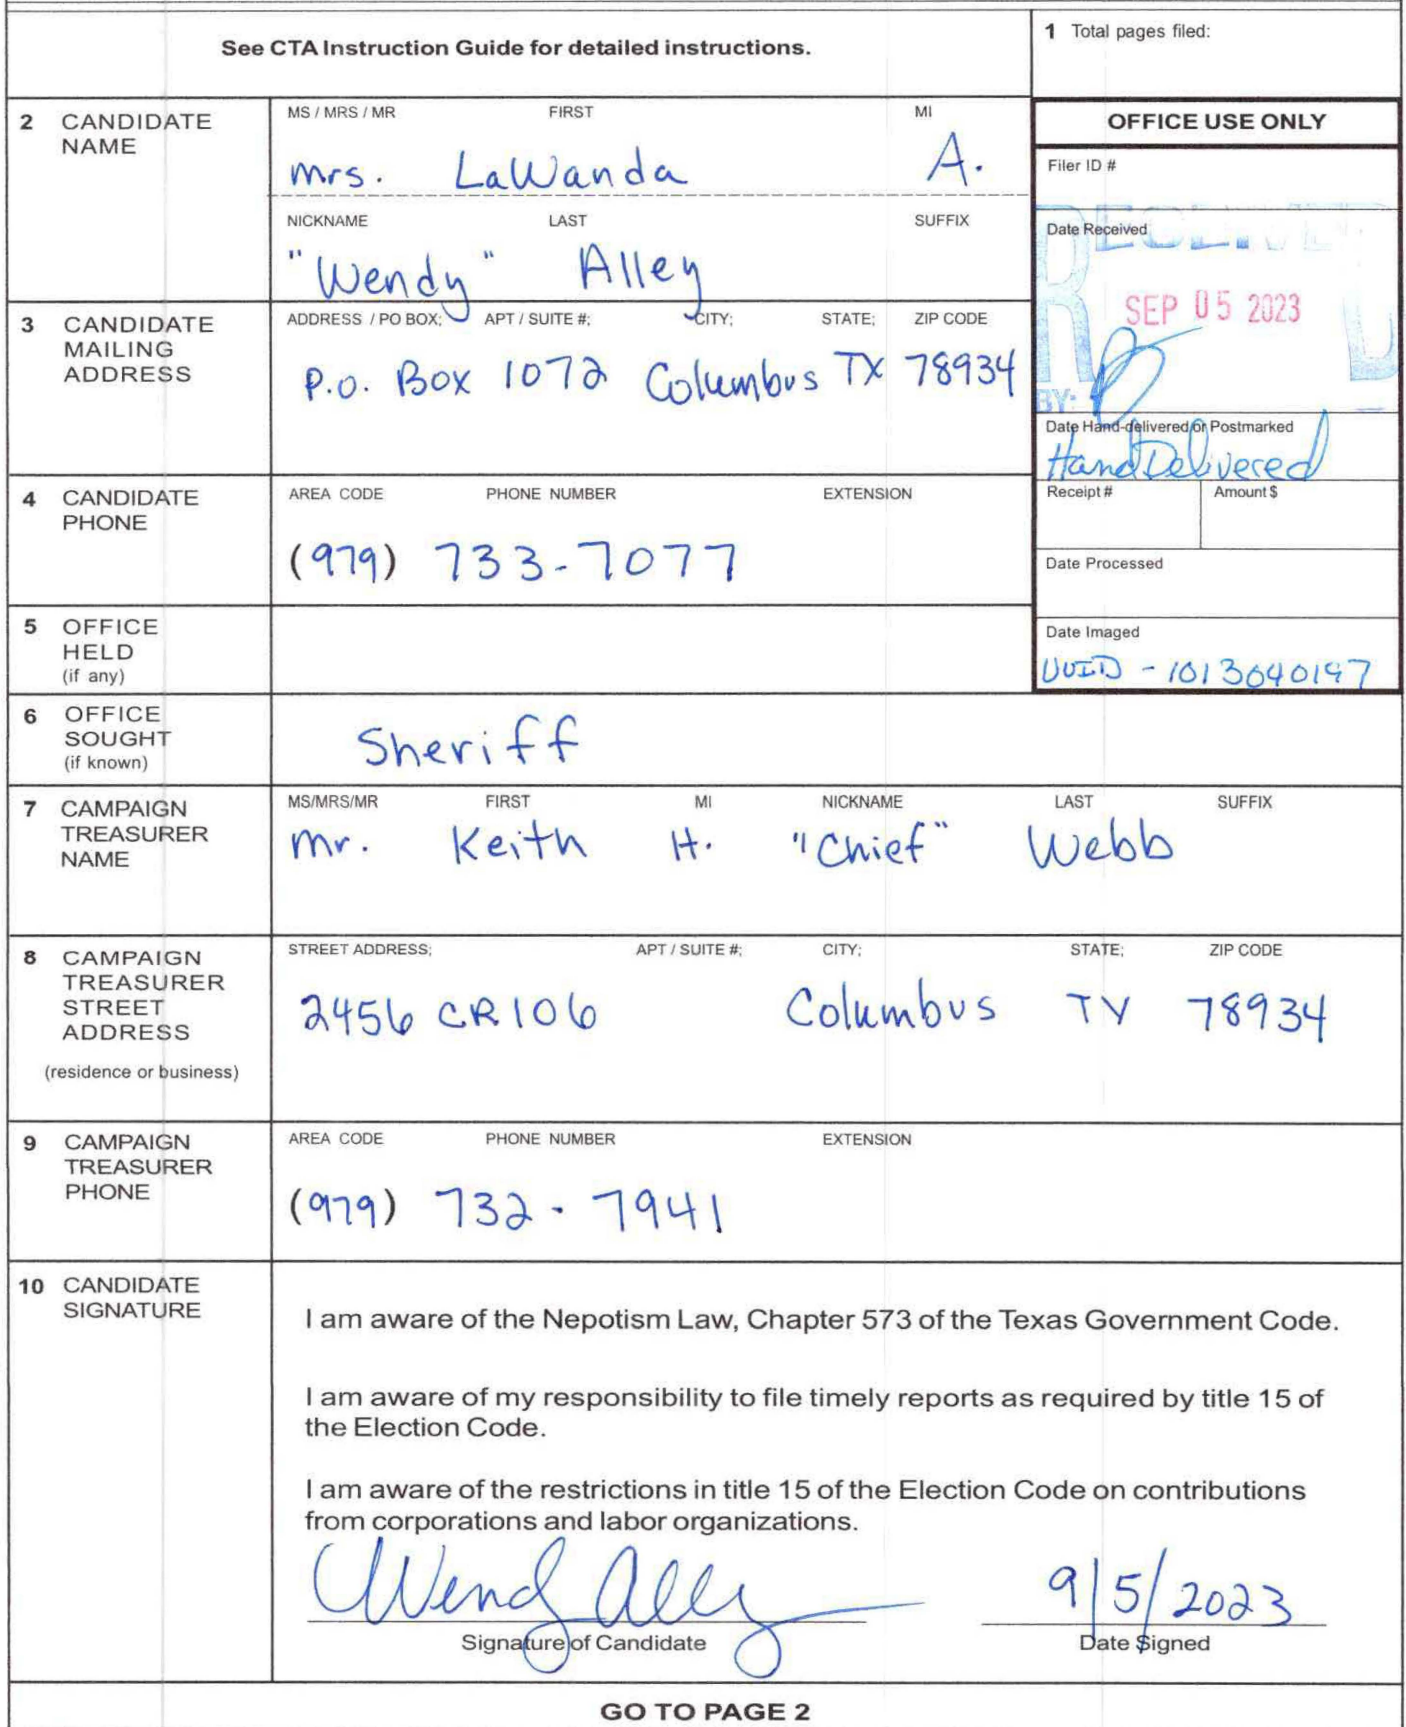 See CTA Instruction Guide for detailed instructions.
1 Total pages filed:
2 CANDIDATE NAME
MS / MRS / MR FIRST MI
Mrs. LaWanda A.
NICKNAME LAST SUFFIX
"Wendy" Alley
OFFICE USE ONLY
Filer ID #
Date Received
RECEIVED
SEP 05 2023
BY:
Date Hand-delivered or Postmarked
Hand Delivered
Receipt # Amount $
Date Processed
Date Imaged
VUID - 1013040197
3 CANDIDATE MAILING ADDRESS
ADDRESS / PO BOX; APT / SUITE #; CITY; STATE; ZIP CODE
P.O. Box 1072 Columbus TX 78934
4 CANDIDATE PHONE
AREA CODE PHONE NUMBER EXTENSION
(979) 733-7077
5 OFFICE HELD
(if any)
6 OFFICE SOUGHT
(if known)
Sheriff
7 CAMPAIGN TREASURER NAME
MS/MRS/MR FIRST MI NICKNAME LAST SUFFIX
Mr. Keith H. "Chief" Webb
8 CAMPAIGN TREASURER STREET ADDRESS
(residence or business)
STREET ADDRESS; APT / SUITE #; CITY; STATE; ZIP CODE
2456 CR 106 Columbus TX 78934
9 CAMPAIGN TREASURER PHONE
AREA CODE PHONE NUMBER EXTENSION
(979) 732-7941
10 CANDIDATE SIGNATURE
I am aware of the Nepotism Law, Chapter 573 of the Texas Government Code.
I am aware of my responsibility to file timely reports as required by title 15 of
the Election Code.
I am aware of the restrictions in title 15 of the Election Code on contributions
from corporations and labor organizations.
Wendy Alley 9/5/2023
Signature of Candidate Date Signed
GO TO PAGE 2